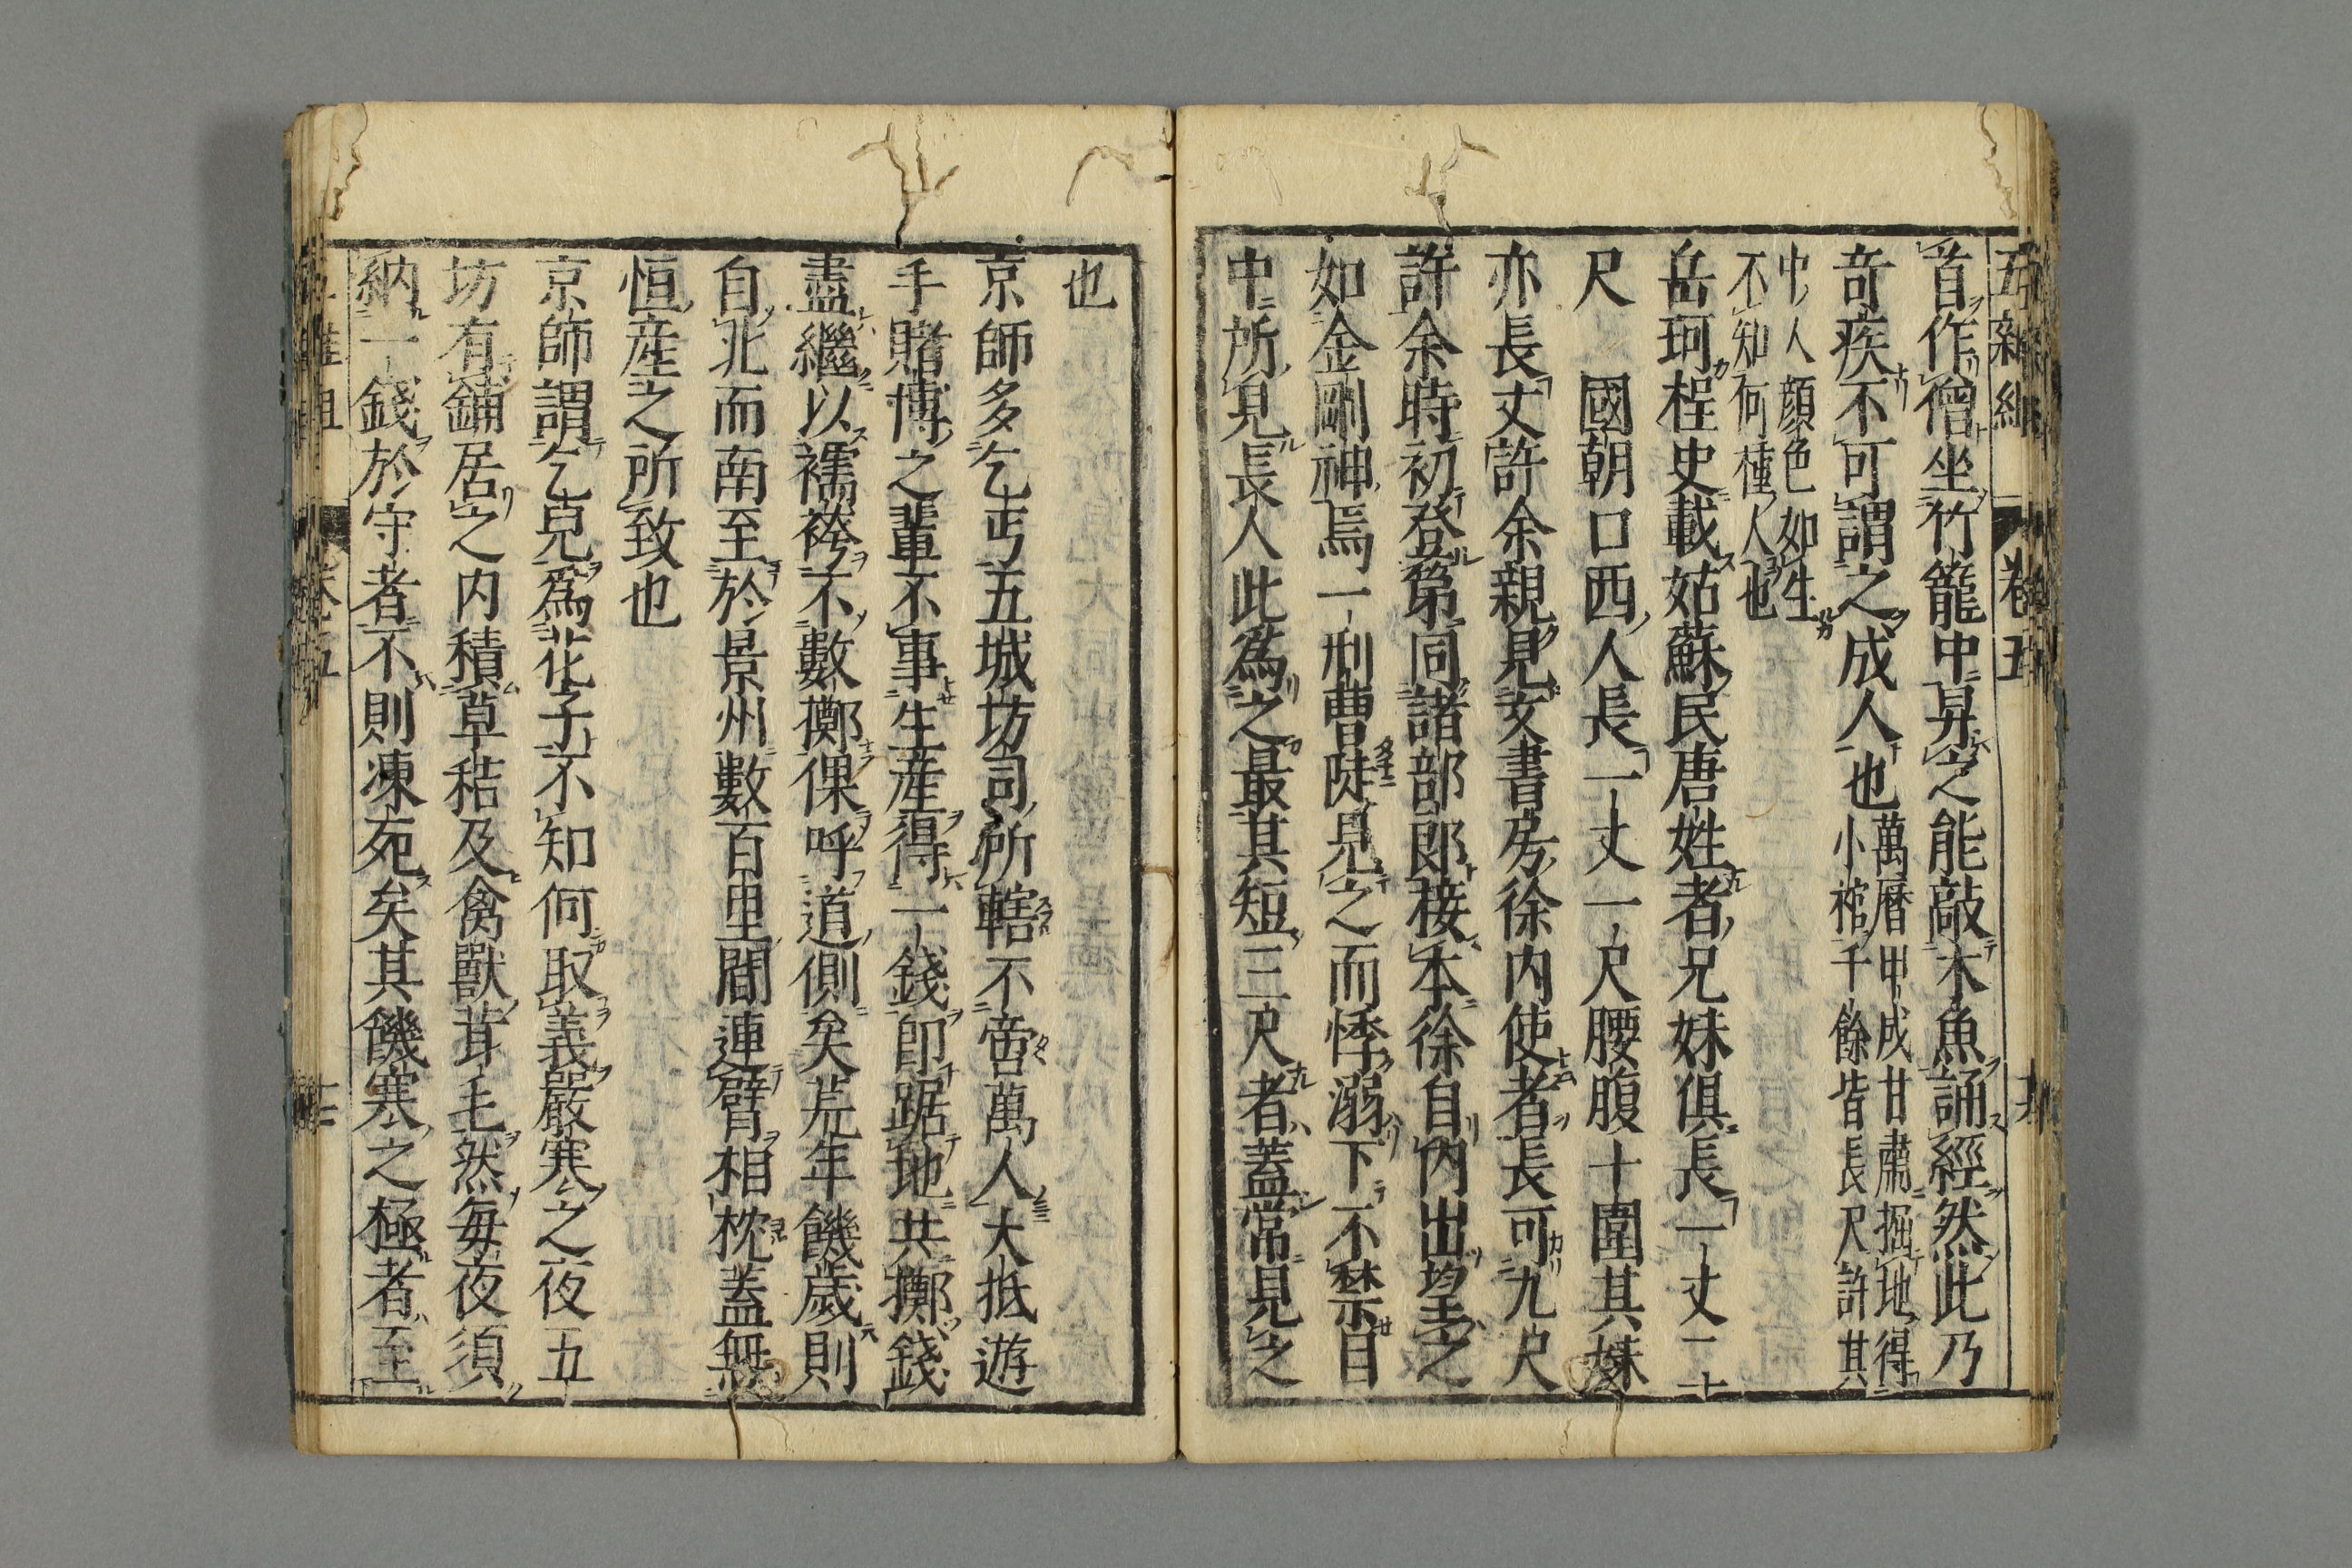 首作僧坐竹籠中舁之能敲木魚誦經然此乃
奇疾不可謂之成人也萬曆甲戌甘肅掘地得小棺千餘皆長尺許其
中人顔色如生不知何種人也
岳珂桯史載姑蘇民唐姓者兄妹俱長一丈二
尺　國朝口西人長一丈一尺腰腹十圍其妹
亦長丈許余親見文書房徐内使者長可九尺
許余時初登第同諸部郎接本徐自内出望之
如金剛神焉一刑曹陡見之而悸溺下不禁目
中所見長人此爲之最其短三尺者蓋常見之
也
京師多乞丐五城坊司所轄不啻萬人大抵遊
手賭博之輩不事生産得一錢即踞地共擲錢
盡繼以襦袴不數擲倮呼道側矣荒年饑歲則
自北而南至於景州數百里間連臂相枕蓋無
恒産之所致也
京師謂乞兒爲花子不知何取義嚴寒之夜五
坊有鋪居之内積草秸及禽獸茸毛然每夜須
納一錢於守者不則凍死矣其饑寒之極者至
卷五